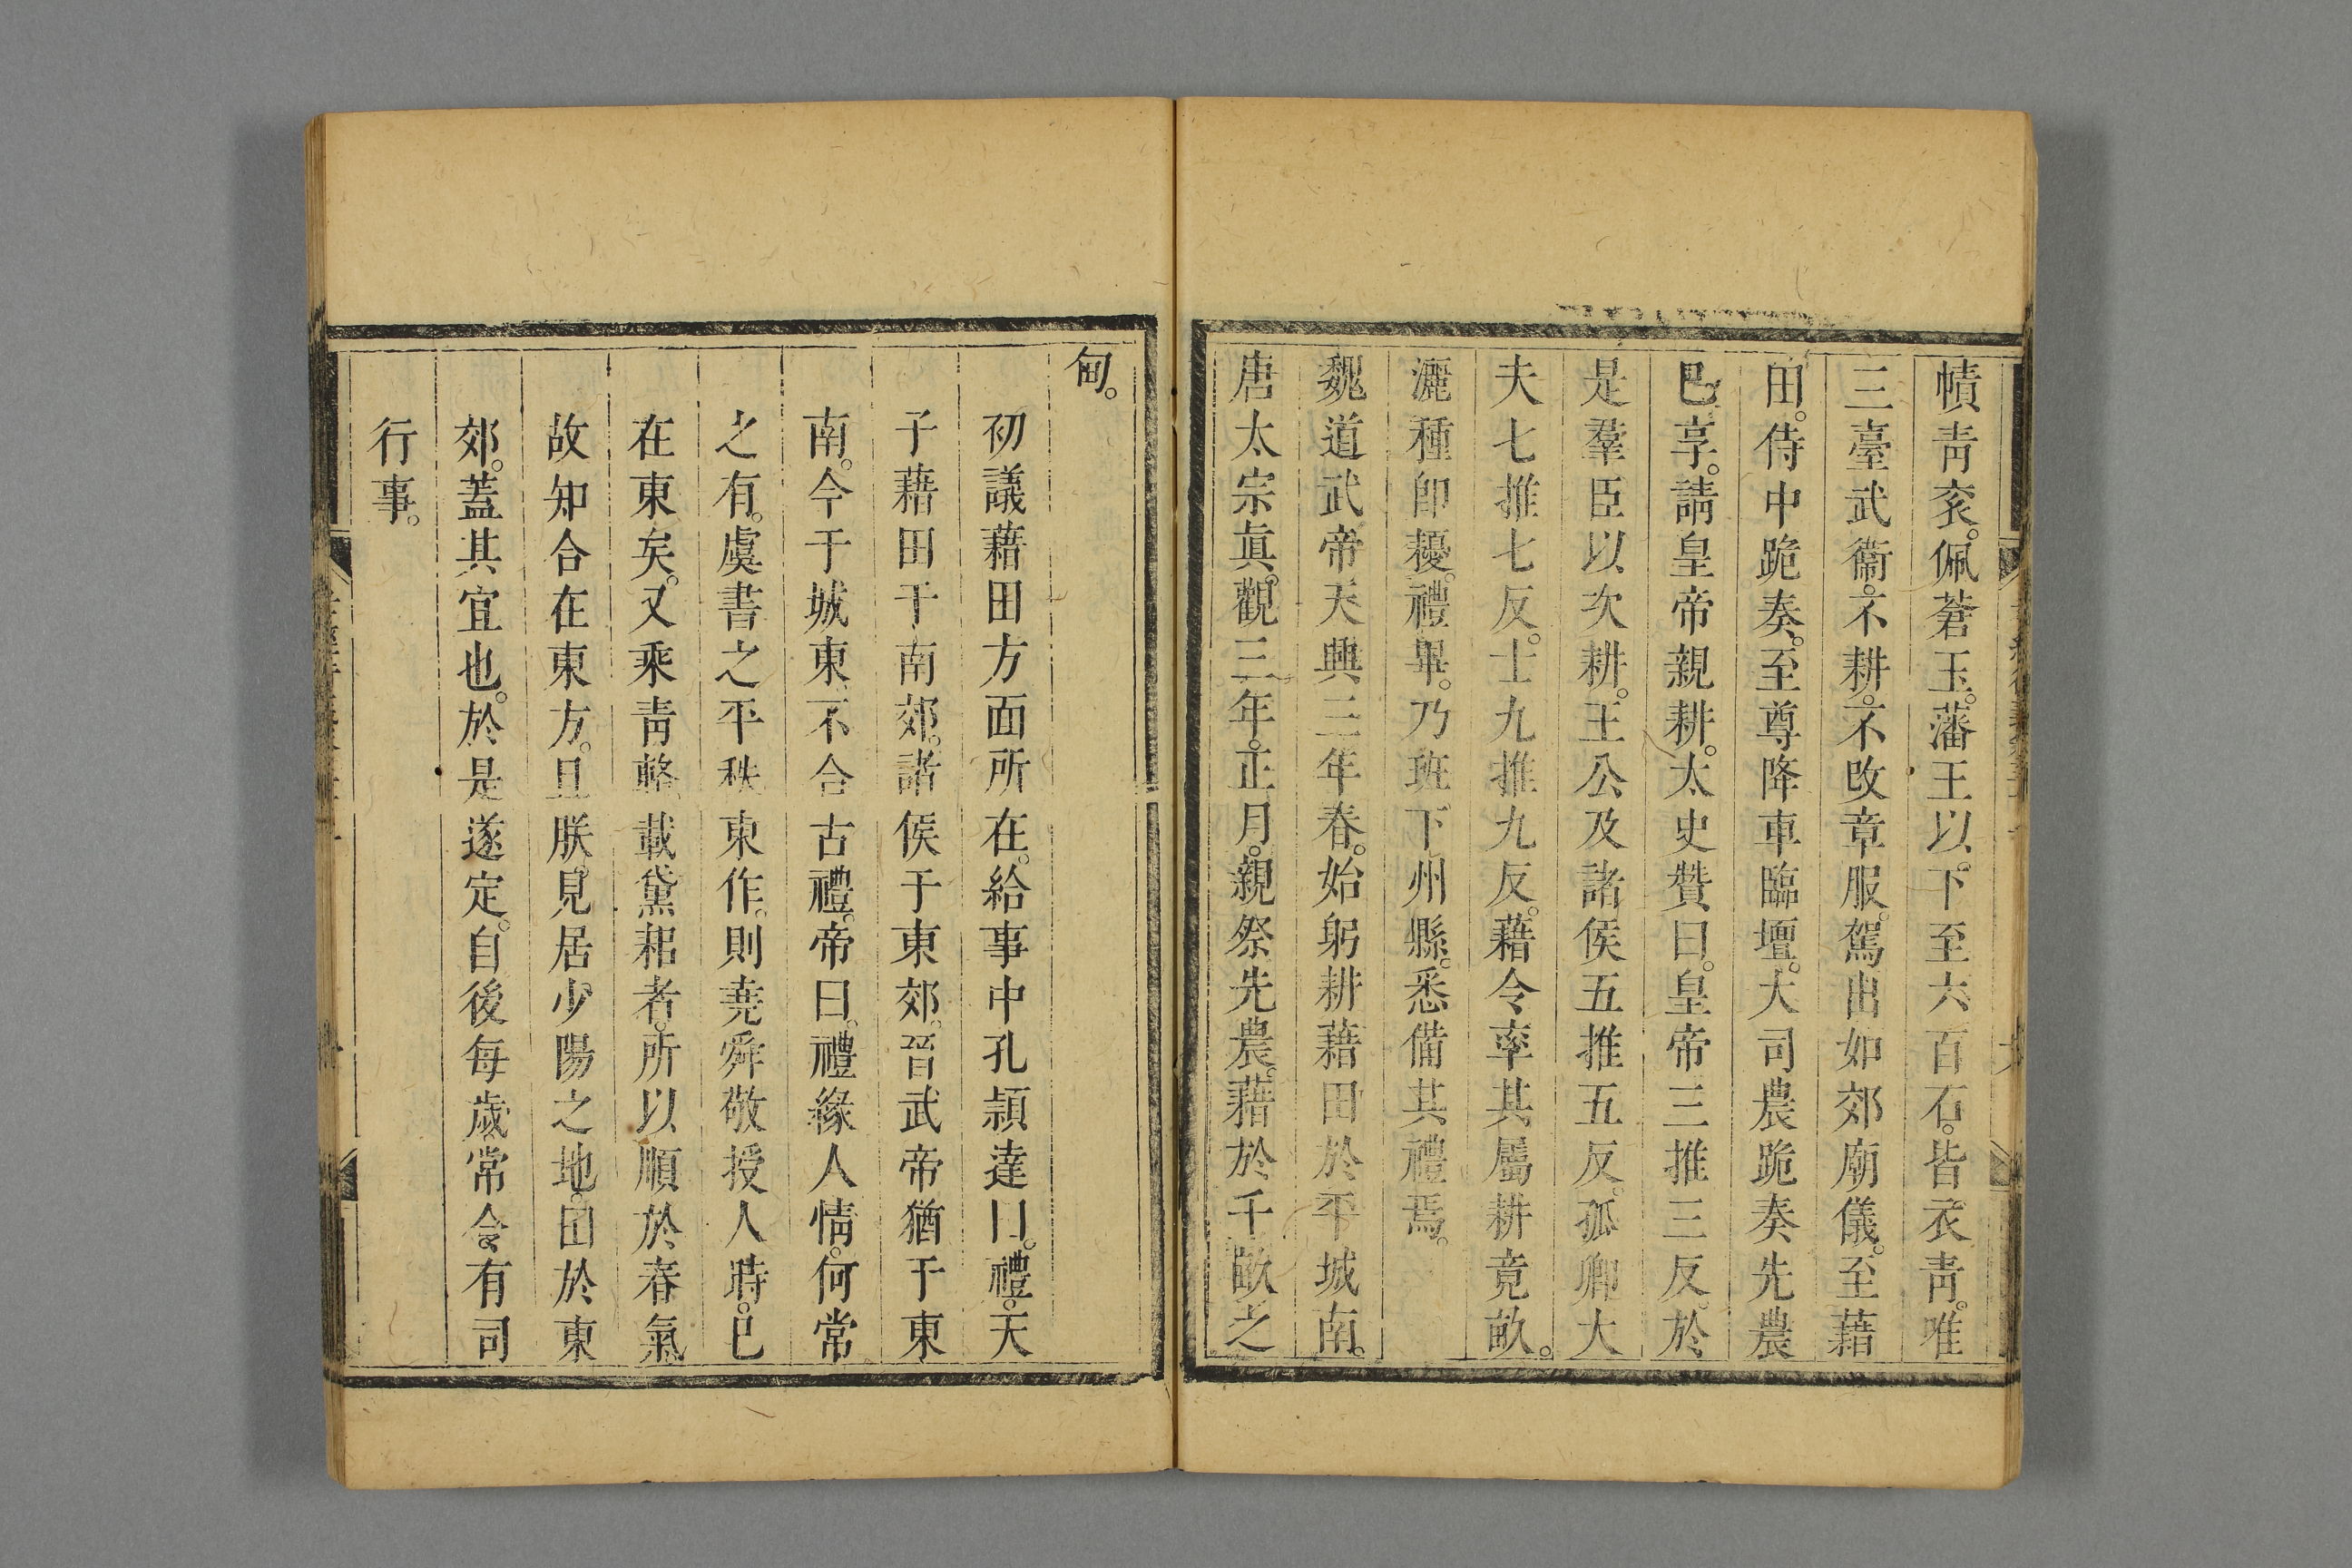 幘青衮。佩蒼玉。藩王以。下至六百石。皆衣青。唯
三臺武衞。不耕。不改章服。駕出如郊廟儀。至藉
田。侍中跪奏。至尊降車臨壇。大司農跪奏先農
巳享。請皇帝親耕。太史贊曰。皇帝三推三反。於
是羣臣以次耕。王公及諸侯五推五反。孤卿大
夫七推七反。士九推九反。藉令率其屬耕竟畝。
灑種卽耰。禮畢。乃班下州縣。悉備其禮焉。
魏道武帝天興三年春。始躬耕藉田於平城南。
唐太宗眞。觀三年。正月。親祭先農。藉於千畝之
甸。
初議藉田方面所在。給事中孔頴達曰。禮。天
子藉田于南郊。諸侯于東郊。晉武帝猶于東
南。今于城東。不合古禮。帝曰。禮緣人情。何常
之有。虞書之平秩東作。則堯舜敬授人時。巳
在東矣。又乘青輅。載黛耜者。所以順於春氣
故知合在東方。且朕。見居。少陽之地。田於東
郊。蓋其宜也。於是遂定。自後每歲常令有司
行事。